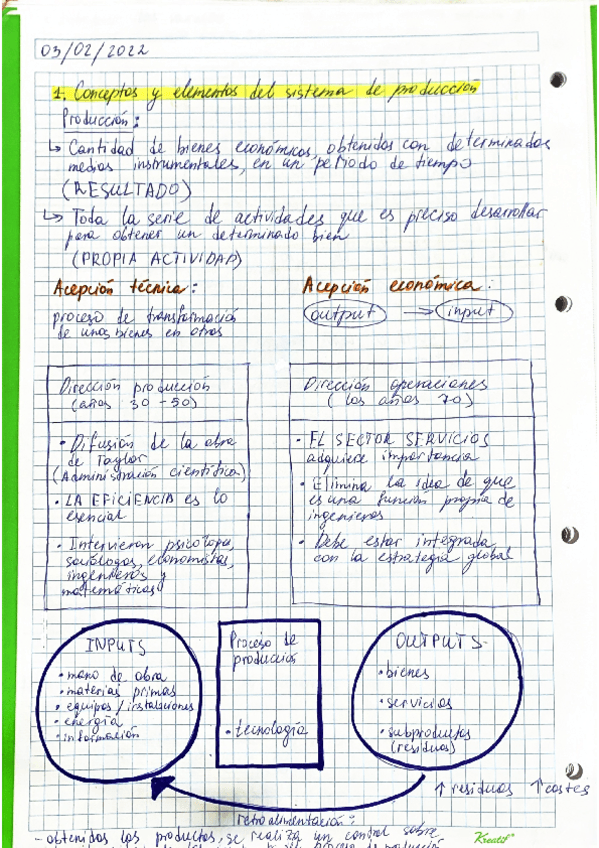 03/02/2022
1. Conceptos y elementos del sistema de producción
Producción:
↳ Cantidad de bienes económicos, obtenidos con determinados
medios instrumentales, en un periodo de tiempo
(RESULTADO)
↳ Toda la serie de actividades que es preciso desarrollar
para obtener un determinado bien
(PROPIA ACTIVIDAD)
Acepción técnica:
proceso de transformación
de unos bienes en otros
Acepción económica:
output → input
Dirección producción
(años 30-50)
• Difusión de la obra
de Taylor
(Administración científica)
• LA EFICIENCIA es lo
esencial
• Intervieron psicologos,
sociólogos, economistas,
ingenieros y
matemáticos
Dirección operaciones
(los años 70)
• EL SECTOR SERVICIOS
adquiere importancia
• Elimina la idea de que
es una función propia de
ingenieros
• Debe estar integrada
con la estrategia global
INPUTS
• mano de obra
• materias primas
• equipos / instalaciones
• energía
• información
Proceso de
producción
• tecnología
OUTPUTS
• bienes
• servicios
• subproductos
(residuos)
↑ residuos ↑ costes
retroalimentación:
- obtenidos los productos, se realiza un control sobre
Kreatif